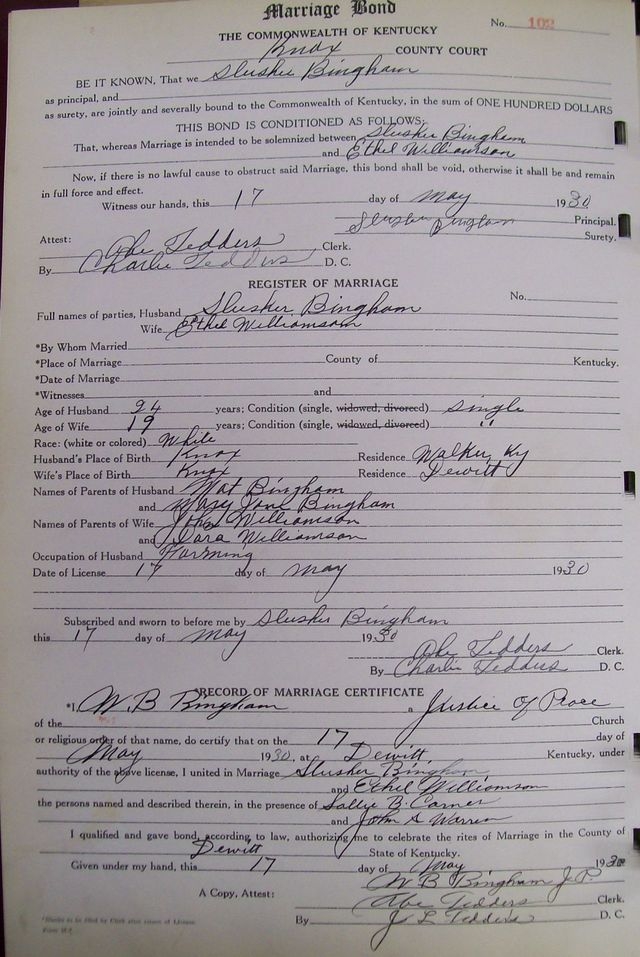 Marriage Bond
No. 102
THE COMMONWEALTH OF KENTUCKY
Knox COUNTY COURT
BE IT KNOWN, That we Slusher Bingham
as principal, and
as surety, are jointly and severally bound to the Commonwealth of Kentucky, in the sum of ONE HUNDRED DOLLARS
THIS BOND IS CONDITIONED AS FOLLOWS:
That, whereas Marriage is intended to be solemnized between Slusher Bingham
and Ethel Williamson
Now, if there is no lawful cause to obstruct said Marriage, this bond shall be void, otherwise it shall be and remain
in full force and effect.
Witness our hands, this 17 day of May 1930
Slusher Bingham Principal.
Surety.
Attest: Abe Tedders Clerk.
By Charlie Tedders D. C.
REGISTER OF MARRIAGE
No.
Full names of parties, Husband Slusher Bingham
Wife Ethel Williamson
*By Whom Married
*Place of Marriage County of Kentucky.
*Date of Marriage
*Witnesses and
Age of Husband 24 years; Condition (single, widowed, divorced) Single
Age of Wife 19 years; Condition (single, widowed, divorced) "
Race: (white or colored) White
Husband's Place of Birth Knox Residence Walker, Ky
Wife's Place of Birth Knox Residence Dewitt
Names of Parents of Husband Mat Bingham
and Mary Jane Bingham
Names of Parents of Wife John Williamson
and Dara Williamson
Occupation of Husband Farming
Date of License 17 day of May 1930
Subscribed and sworn to before me by Slusher Bingham
this 17 day of May 1930
Abe Tedders Clerk.
By Charlie Tedders D. C.
RECORD OF MARRIAGE CERTIFICATE
*I, W. B Bingham a Justice of Peace
of the Church
or religious order of that name, do certify that on the 17 day of
May 1930, at Dewitt, Kentucky, under
authority of the above license, I united in Marriage Slusher Bingham
and Ethel Williamson
the persons named and described therein, in the presence of Sallie B. Carnes
and John G Warren
I qualified and gave bond, according to law, authorizing me to celebrate the rites of Marriage in the County of
Dewitt State of Kentucky.
Given under my hand, this 17 day of May 1930
W B Bingham J. P.
A Copy, Attest: Abe Tedders Clerk.
By J. L Tedders D. C.
*Blanks to be filed by Clerk after return of License